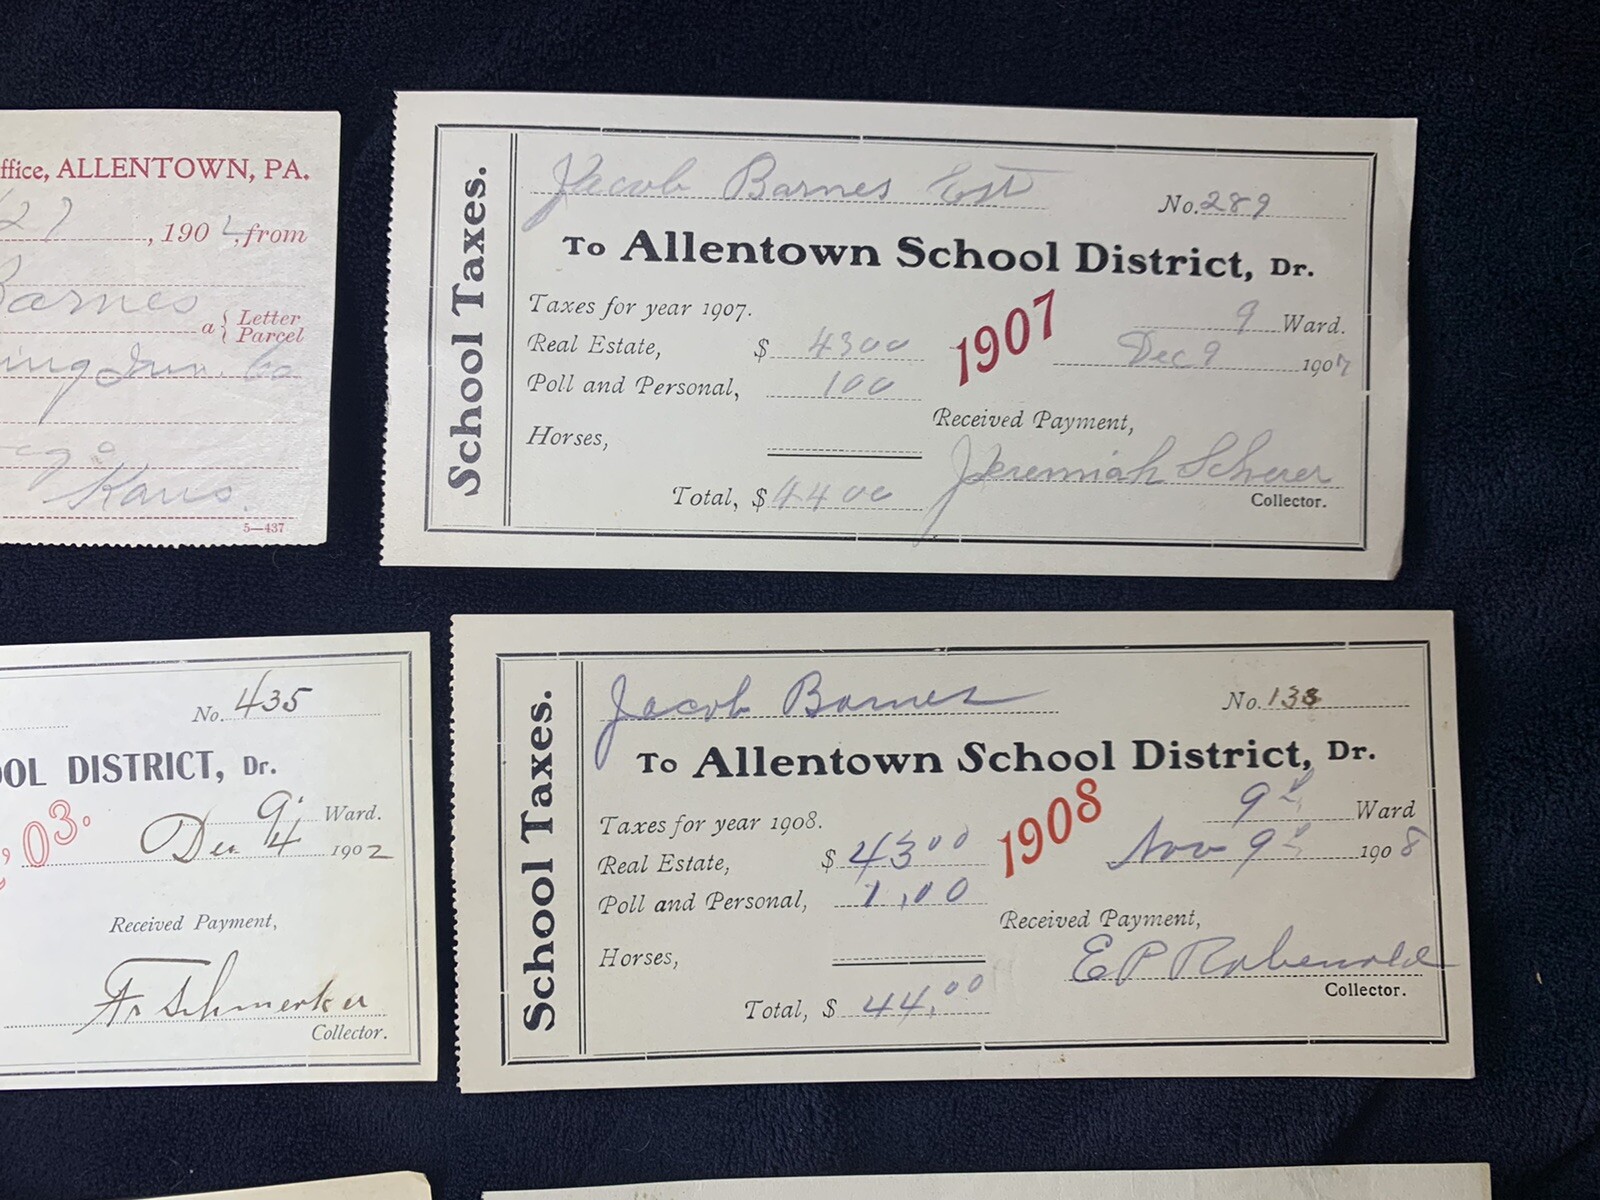 ffice, ALLENTOWN, PA.
27, 190 , from
Barnes
a { Letter
Parcel
Kans.
5—437
School Taxes.
Jacob Barnes Est
No. 289
To Allentown School District, Dr.
Taxes for year 1907.
1907
9 Ward.
Real Estate, $ 4300
Dec 9 1907
Poll and Personal, 100
Received Payment,
Horses,
Jeremiah Scherer
Total, $ 4400
Collector.
No. 435
OOL DISTRICT, Dr.
, 03.
9" Ward.
Dec 4 1902
Received Payment,
Collector.
School Taxes.
Jacob Barnes
No. 138
To Allentown School District, Dr.
Taxes for year 1908.
1908
9th Ward
Real Estate, $ 43 00
Nov 9th 1908
Poll and Personal, 1,00
Received Payment,
Horses,
E P Rabenold
Total, $ 44,00
Collector.